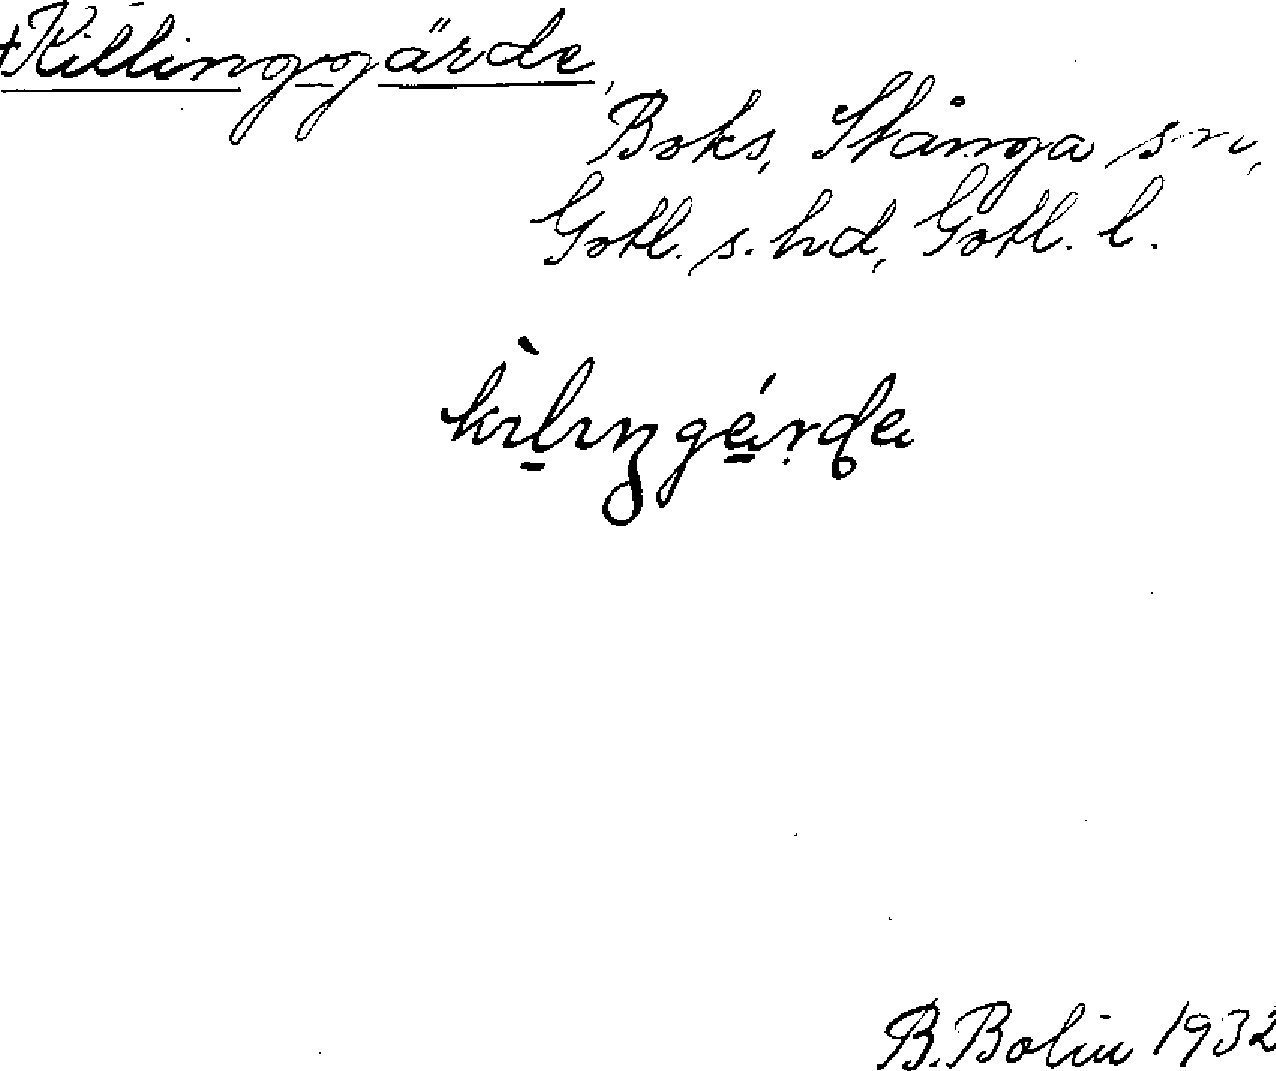 +Killinggärde,
Boks, Stånga sn,
Gotl. s. hd, Gotl. l.
kìlıŋgárda
B. Bolin 1932